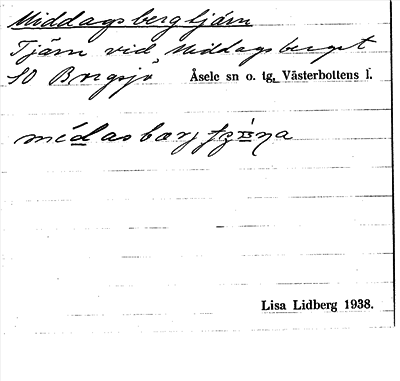 Middagsbergtjärn
Tjärn vid Middagsberget
SO Borgsjö Åsele sn o. tg, Västerbottens l.
Lisa Lidberg 1938.